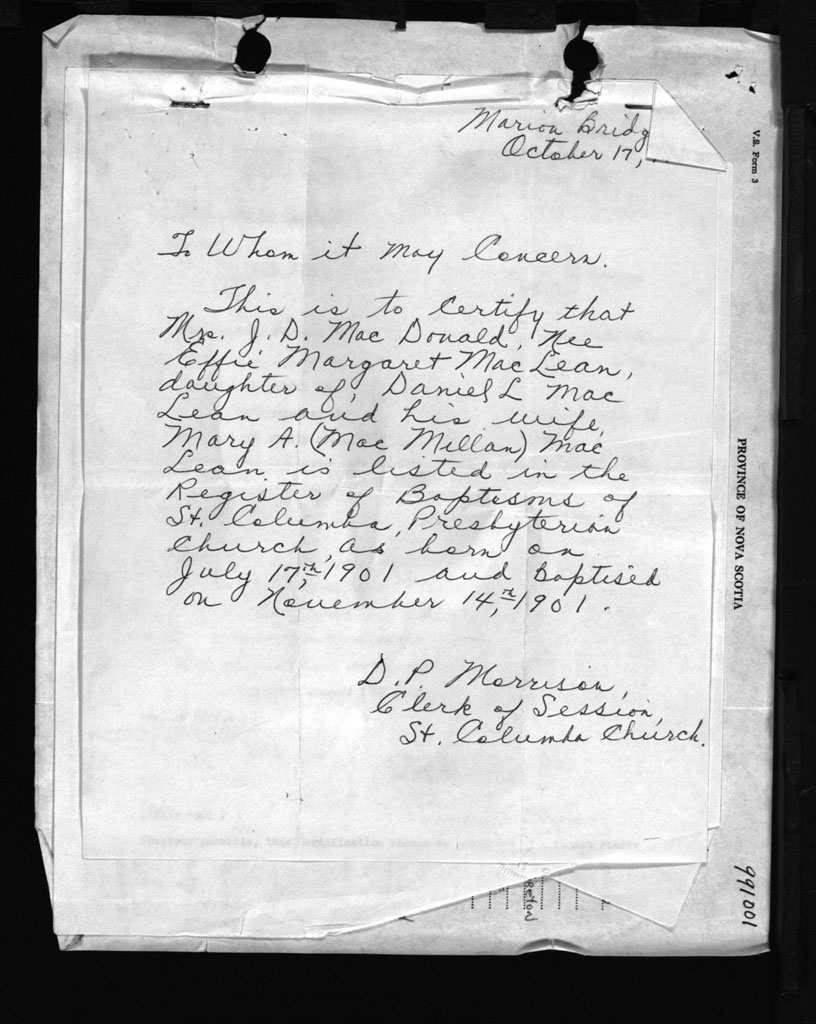 Marion Bridg
October 17,
To Whom it may Concern.
This is to Certify that
Mrs. J. D. Mac Donald, Nee
Effie Margaret MacLean,
daughter of, Daniel L Mac
Lean and his wife,
Mary A. (Mac Millan) Mac
Lean is listed in the
Register of Baptisms of
St. Columba, Presbyterian
Church, as born on
July 17,th 1901 and Baptised
on November 14,th 1901.
D. P. Morrison,
Clerk of Session,
St. Columba Church.
V.S. Form 3
PROVINCE OF NOVA SCOTIA
991001